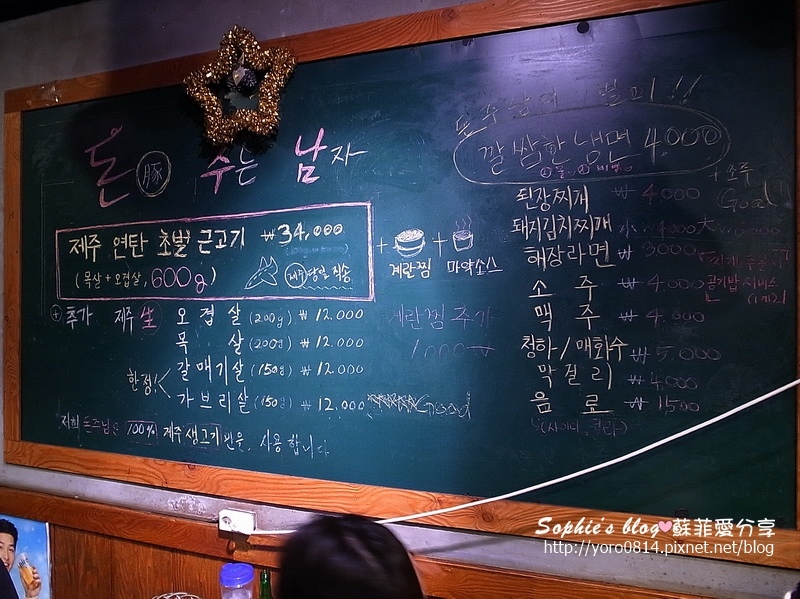 돈 豚 수는 남자
제주 연탄 초벌 근고기 ₩34,000
(목살+오겹살, 600g)
제주 당일 직송
+ 계란찜 + 마약소스
+ 추가 제주 生 오겹살 (200g) ₩12.000
목살 (200g) ₩12.000
한정! 갈매기살 (150g) ₩12.000
가브리살 (150g) ₩12.000 Good
계란찜 추가
1,000₩
저희 돈주남은 100% 제주 생고기만을 사용합니다
별미!!
깔쌈한 냉면 4,000
+소주
Good
된장찌개 ₩4,000
돼지김치찌개 小 ₩4000 大
해장라면 ₩3000
소주 ₩4,000
공기밥 서비스
맥주 ₩4,000
청하/매화수 ₩5,000
막걸리 ₩4,000
음료 ₩1,500
(사이다, 콜라)
Sophie's blog♥蘇菲愛分享
http://yoro0814.pixnet.net/blog